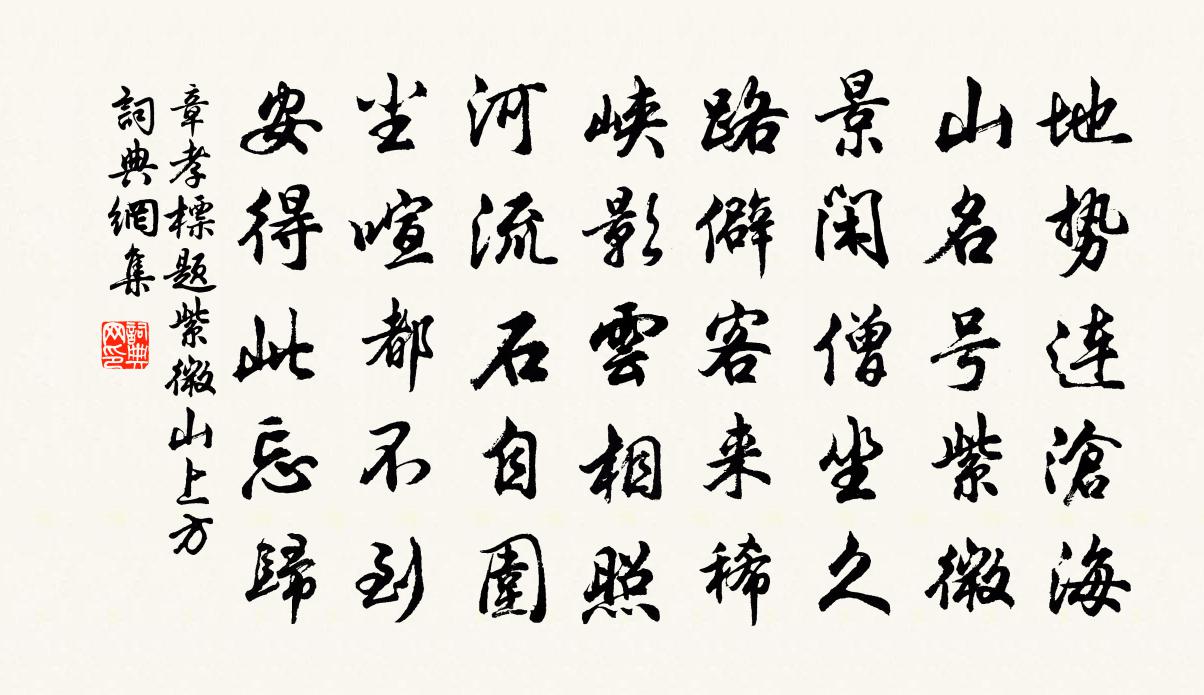 地势连滄海
山名号紫微
景闲僧坐久
路僻客来稀
峡影雲相照
河流石自圍
尘喧都不到
安得此忘歸
章孝標題紫微山上方
詞典網集
詞典网印